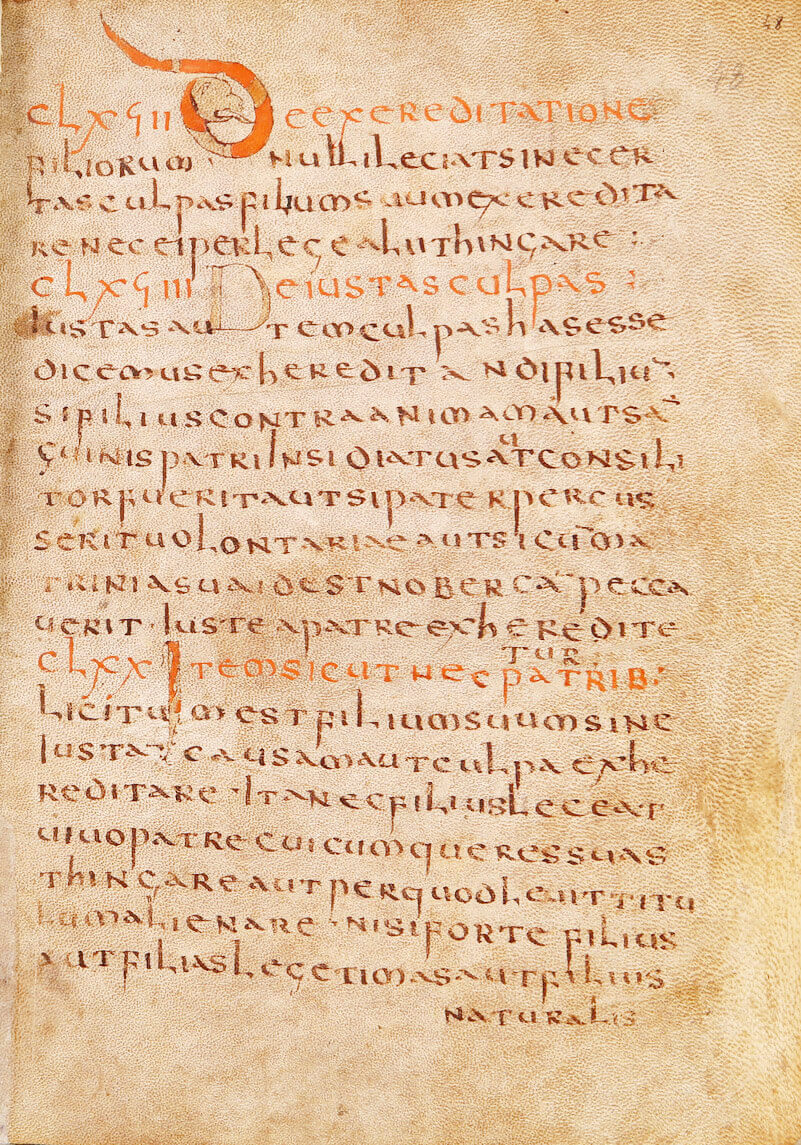 48
44
CLXVIII DE EXEREDITATIONE
FILIORUM NULLI LECIAT SINE CER
TAS CULPAS FILIUM SUUM EXEREDITA
RE NEC EI PER LEGE ALII THINGARE :
CLXVIIII DE IUSTAS CULPAS :
IUSTAS AUTEM CULPAS HAS ESSE
DICEMUS EXHEREDITANDI FILIU¯
SI FILIUS CONTRA ANIMAM AUT SA¯
GUINIS PATRI INSIDIATUS AUT CONSILI
TOR FUERIT AUT SI PATER PERCUS
SERIT UOLONTARIAE AUT SI CU¯ MA
TRINIA SUA IDEST NOBERCA¯ PECCA
UERIT · IUSTE A PATRE EXHEREDITE
TUR :
CLXX ITEM SICUT NEC PATRIB :
LICITUM EST FILIUM SUUM SINE
IUSTA¯ CAUSAM AUT CULPA EXHE
REDITARE · ITA NEC FILIUS LECEAT
UIUO PATRE CUICUMQUE RES SUAS
THINGARE AUT PER QUOD LEUIT TITU
LUM ALIENARE · NISI FORTE FILIUS
AUT FILIAS LEGETIMAS AUT FILIUS
NATURALIS